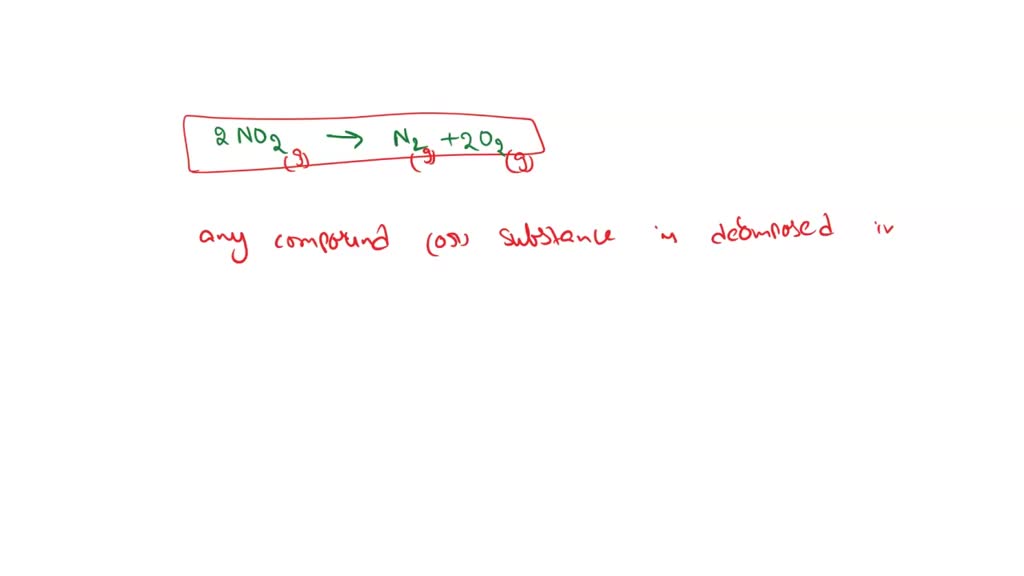 2 NO2(g) → N2(g) + 2O2(g)
any compound (or) substance is decomposed in